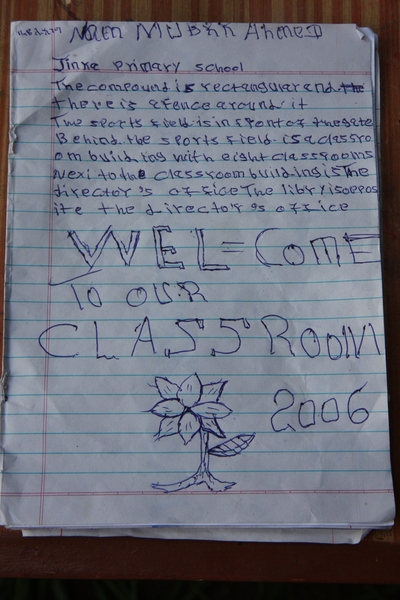 Nam Mubark Ahmed
Jinka Primary school
The compound is rectangular and the
there is a fence around it
The sports field is in s front of the gate
Behind the sports field. is a classro
om building with eight classrooms
Next to the classroom building is The
director's office The libry is oppos
ite the director's office
WEL=COME
TO OUR
CLASSROOM
2006